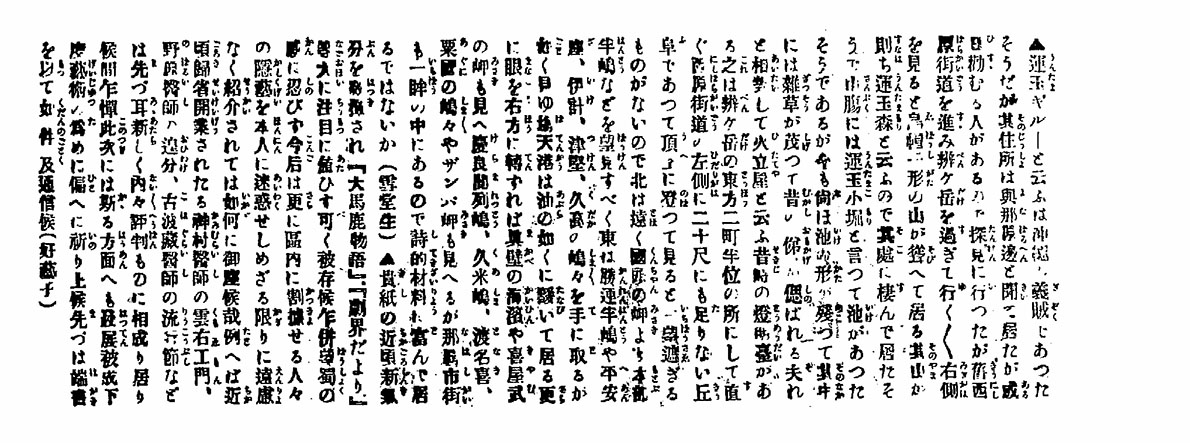 ▲運玉ギルーと云ふは沖縄の義賊であつた
そうだが其住所は與那原邊と聞て居たが或
日物むる人があるので探見に行つたが舊西
原街道を進み辨ケ岳を過ぎて行く〱右側
を見ると烏帽子形の山が聳へて居る其山が
則ち運玉森と云ふので其處に棲んで居たそ
うで山腹には運玉小堀と言つて池があつた
そうであるが今も尚ほ池の形が殘つて其中
には雜草が茂つて昔の俤が偲ばれる夫れ
と相對して火立屋と云ふ昔時の燈明臺があ
る之は辨ケ岳の東方二町半位の所にして直
ぐ西原街道の左側に二十尺にも足りない丘
阜であつて頂上に登つて見ると一つ遮ぎる
ものがないので北は遠く國頭の岬より本部
半嶋などを望見すべく東は勝連半嶋や平安
座、伊計、津堅、久高の嶋々を手に取るが
如く見ゆ馬天港は油の如くに靜いて居る更
に眼を右方に轉ずれば眞壁の海濱や喜屋武
の岬も見へ慶良間列嶋、久米嶋、渡名喜、
粟國の嶋々やザンパ岬も見へるが那覇市街
も一眸の中にあるので詩的材料に富んで居
るではないか（雲堂生）▲貴紙の近頃新氣
分を發揮され『大馬鹿物語』『劇界だより』
等大に注目に値ひす可く被存候乍併望蜀の
感に忍びす今后は更に區内に割據せる人々
の隱藝を本人に迷惑せしめざる限りに遠慮
なく紹介されては如何に御座候哉例へば近
頃歸省開業されたる神村醫師の雲右工門、
野原醫師の追分、古波藏醫師の流行節など
は先づ耳新しく内々評判ものに相成り居り
候間乍憚此次には斯る方面へも發展被成下
度藝術の爲めに偏へに祈り上候先づは端書
を以て如件 及通信候（好藝子）